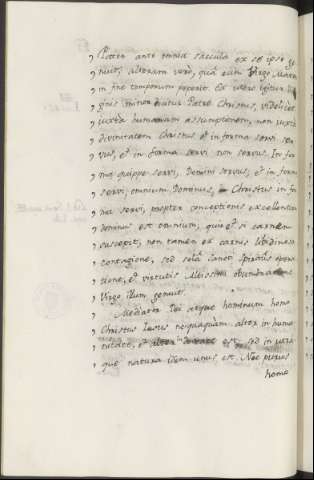 , Pater ante omnia sæcula ex se ipso ge-
, nuit; alteram verò, quâ eum Virgo Maria
, in fine temporum peperit. Ex utero igitur Vir-
, ginis minor dicitur Patre Christus, videlicet
, juxtà humanam assumptionem, non juxtà
, divinitatem. Christus et in forma servi ser-
, vus, et in forma servi non servus. In for-
, ma quippe servi, Domini servus; et in forma
, servi, omnium Dominus. Christus in for-
, ma servi, propter conceptionis excellentiam
, dominus est omnium, quia etsi carnem
, suscepit, non tamen ex carnis libidinosa
, contagione, sed solâ Sancti Spiritûs
, et virtutis Altissimi obumbratione
, Virgo illum genuit.
, Mediator Dei atque hominum homo
, Christus Iesus nequaquàm alter in huma-
, nitate, et alter deitate est, sed in utra-
, que natura idem unus est. Nec purus
homo